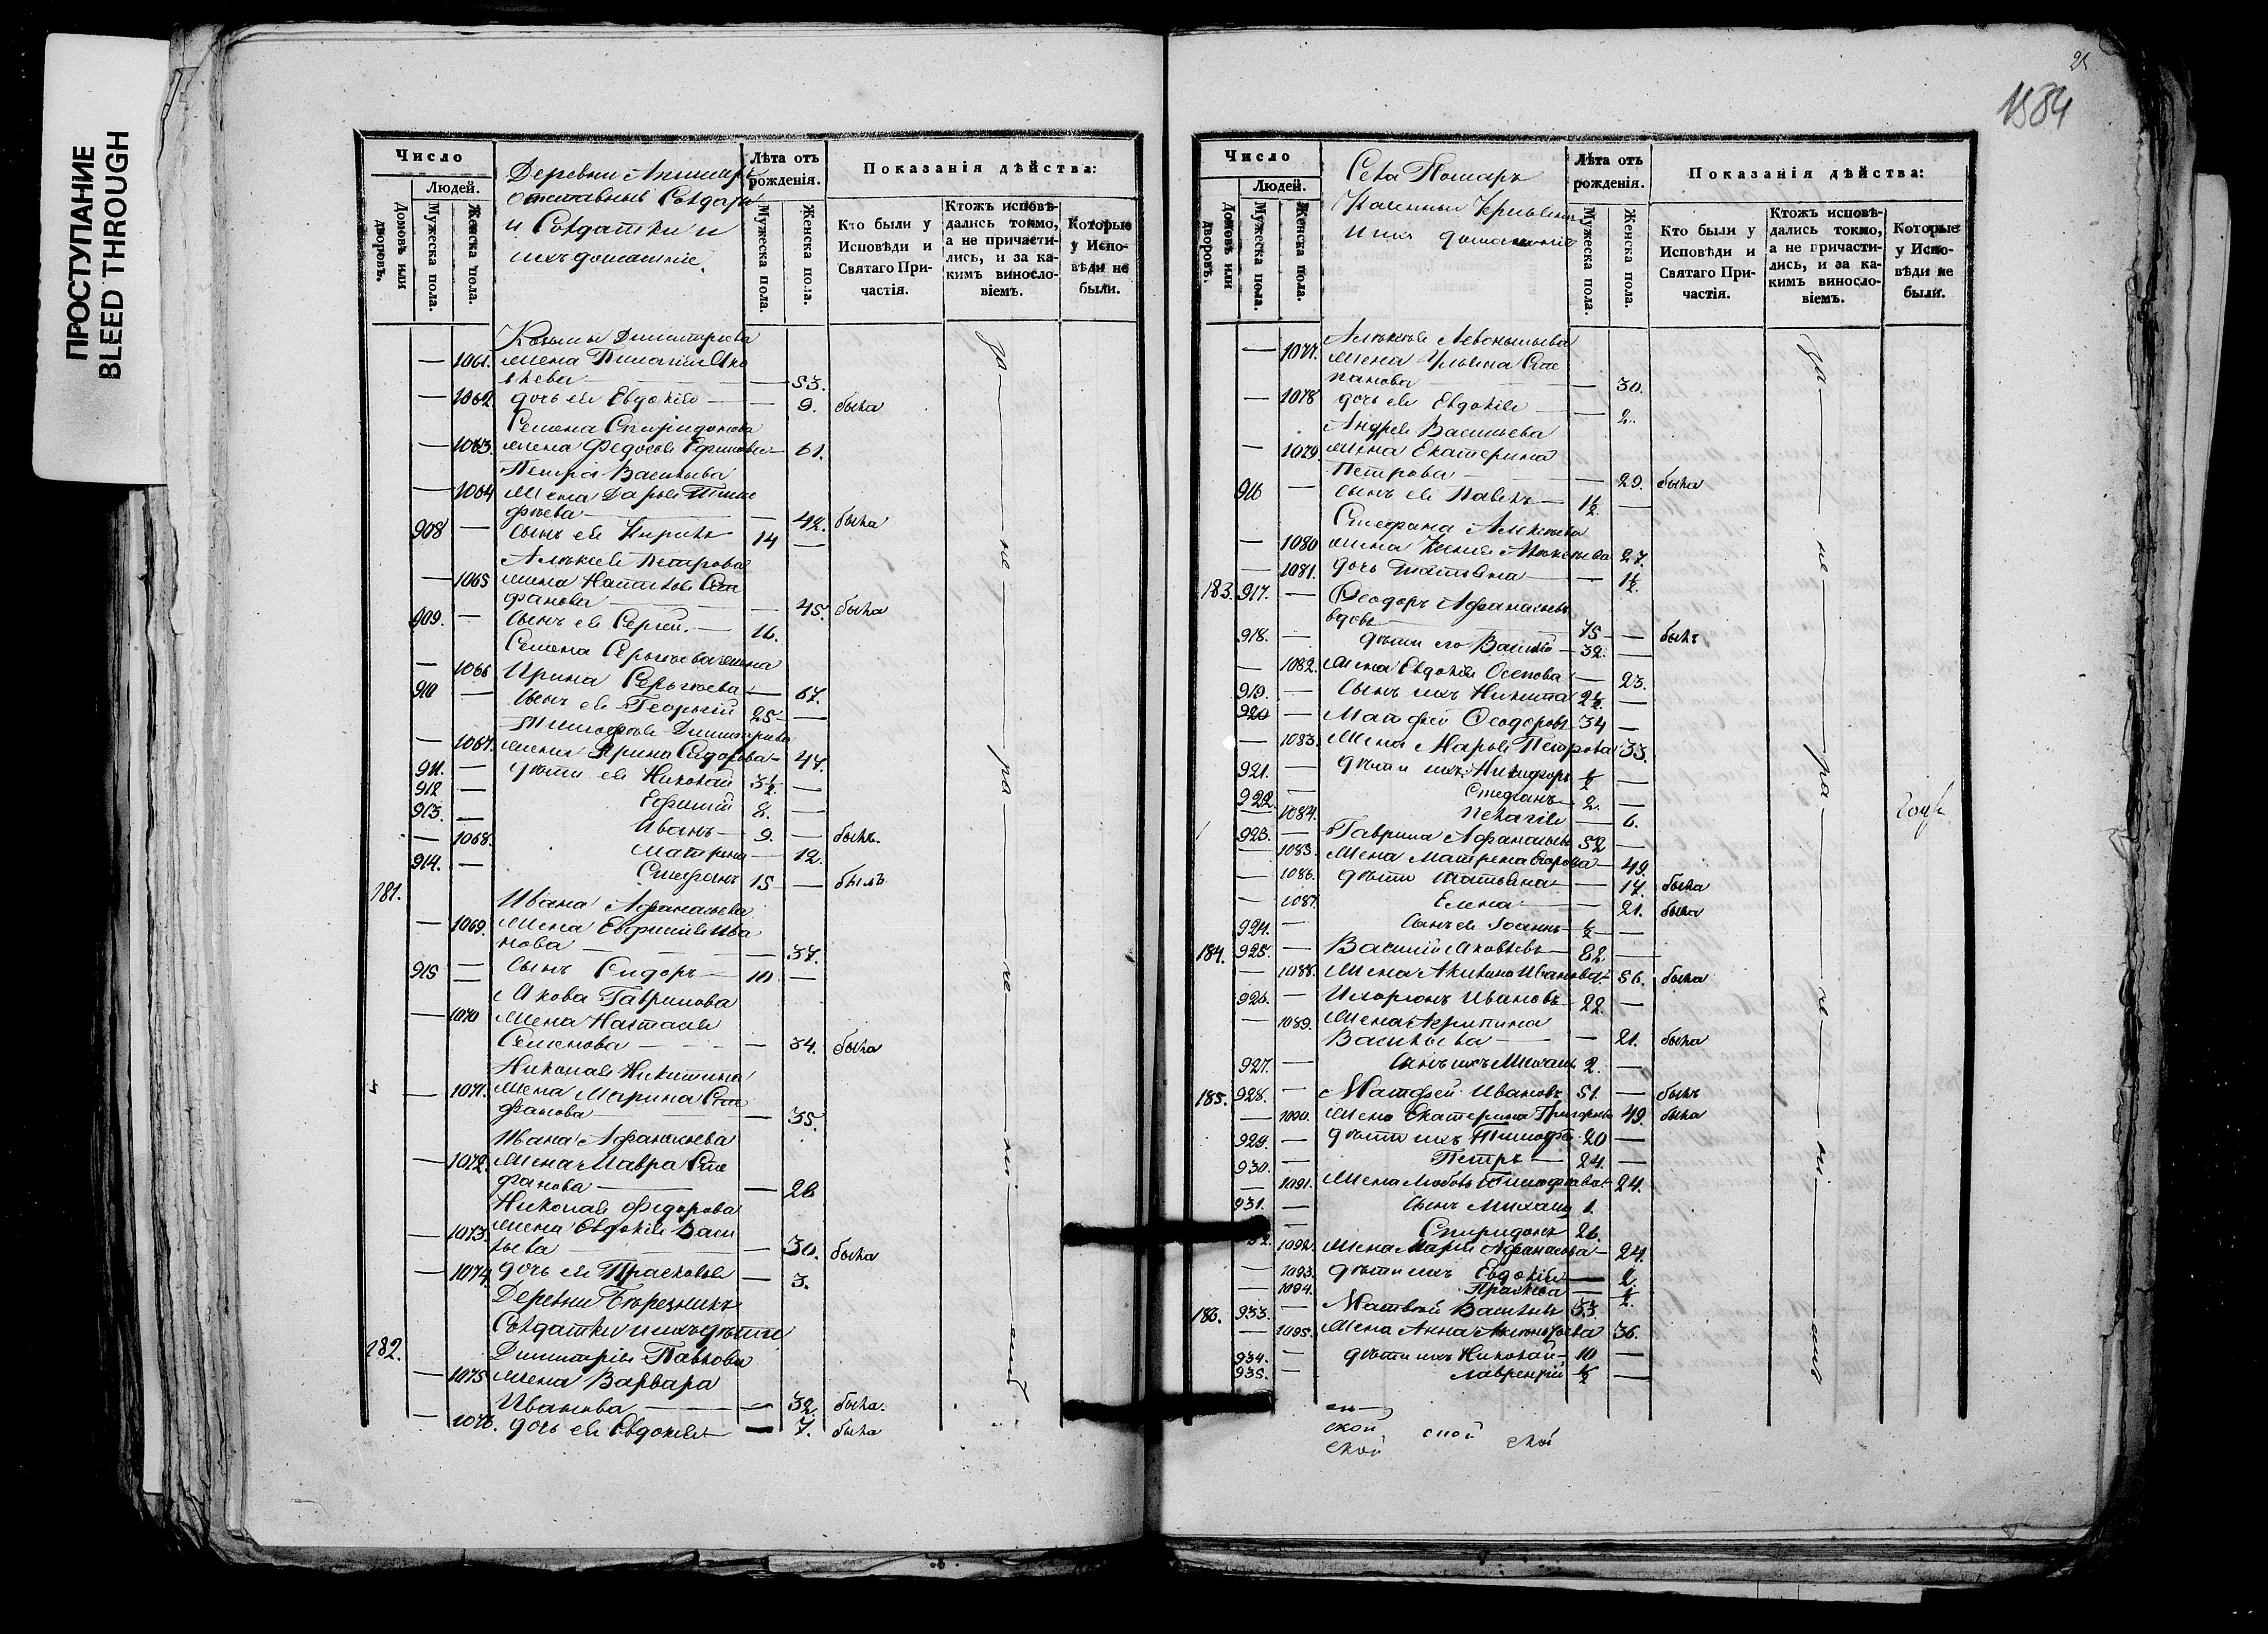 ПРОСТУПАНИЕ
BLEED THROUGH
Число
Людей.
Домовъ или дворовъ.
Мужеска пола.
Женска пола.
Деревни
отставные Солдаты
и Солдатки и
ихъ домашніе.
Лѣта отъ рожденія.
Мужеска пола.
Женска пола.
Показанія дѣйства:
Кто были у Исповѣди и Святаго Причастія.
Ктожъ исповѣдались токмо, а не причастились, и за какимъ винословіемъ.
Которые у Исповѣди не были.
Козьмы Димитріева
— 1061. жена Пелагія Яко
влева — — 53.
— 1062. дочь ея Евдокія — — 9. была
Семена Спиридонова
— 1063. жена Федосья Ефимова — 61.
Петра Васильева
— 1064 жена Дарья Тимо
фѣева — — 42. была
908 — сынъ ея Кирилъ 14 —
Алексѣя Петрова
— 1065 жена Наталья Сте
фанова — — 45. была
909. — Сынъ ея Сергей. — 16.
Семена Сергѣева жена
— 1066 Ирина Сергѣева — 67.
910 — сынъ ея Георгій 25 —
Тимофея Димитріева
— 1067. жена Ирина Сидорова — 47.
911. — дѣти ея Николай 3½ —
912 — Ефимій 8. —
913. — Иванъ — 9. — былъ.
— 1068. Матрена — 12.
914. — Стефанъ 15 — былъ
181. Ивана Афанасьева
— 1069. жена Евфимія Ива
нова — — 37.
915 — сынъ Сидоръ — 10 —
Якова Гаврилова
— 1070 жена Наталія
Семенова — — 34. была
Николая Никитина
— 1071. жена Марина Сте
фанова — — 35.
Ивана Афанасьева
— 1072. жена Мавра Сте
фанова — — 28
Николая Федорова
— 1073. жена Евдокія Васи
льева — — 30. была
— 1074. дочь ея Прасковья — 3.
Деревни Березникъ
Солдатки и ихъ дѣти
182. Димитрія Павлова
— 1075 жена Варвара
Иванова — — 32. была.
— 1076. дочь ея Евдокія — 7. была
21
1584
Число
Людей.
Домовъ или дворовъ.
Мужеска пола.
Женска пола.
Села Пошаръ
и ихъ домашніе
Лѣта отъ рожденія.
Мужеска пола.
Женска пола.
Показанія дѣйства:
Кто были у Исповѣди и Святаго Причастія.
Ктожъ исповѣдались токмо, а не причастились, и за какимъ винословіемъ.
Которые у Исповѣди не были.
Алексѣя Левонтьева
— 1077. жена Ульяна Сте
панова — — 30.
— 1078 дочь ея Евдокія — — 2.
Андрея Васильева
— 1079. жена Екатерина
Петрова — — 29. была
916 — сынъ ея Павелъ — 1½ —
Стефана Алексѣева
— 1080 жена Ксенія 27.
— 1081. дочь Татьяна — — 1½
183. 917. — Ѳеодоръ Афанасьевъ
вдовъ — 75 — былъ
918. — дѣти его Василій — 32. —
— 1082. жена Евдокія Осипова — 23.
919. — сынъ ихъ Никита 2½ —
920 — Матфей Ѳеодоровъ 34 —
— 1083. жена Марья Петрова 33.
921. — дѣти ихъ Никифоръ ½ —
922. — Стефанъ — 2. —
1084. Пелагія — 6.
923. — Гаврила Афанасьевъ 52 —
— 1085. жена Матрена Егорова — 49.
— 1086. дѣти Татьяна — — 17. была
— 1087. Елена — — 21. была
924. — сынъ ея Іоаннъ — ½ —
184. 925. — Василій Яковлевъ — 82. —
— 1088. жена Акилина Иванова. — 56. была
926. — Иларіонъ Ивановъ — 22. —
— 1089. жена Агрипина
Васильева — — 21. была
927. — сынъ ихъ Михаилъ 2. —
185. 928. — Матфей Ивановъ 51. — былъ
— 1090. жена Екатерина Григорьева 49. была
929. — дѣти ихъ Тимофей 20 —
930. — Петръ — 24. —
— 1091. жена Любовь Тимофеева — 24.
931. — сынъ Михаилъ 1.
32. — Спиридонъ 26.
1092. жена Марія Афанасьева — 24.
— 1093. дѣти ихъ Евдокія — 2.
— 1094. Прасковья — ½
186. 933. — Матвѣй Васильевъ 33. —
— 1095. жена Анна 36.
934. — дѣти ихъ Николай — 10 —
935. — Лаврентій ½ —
ской ской ской